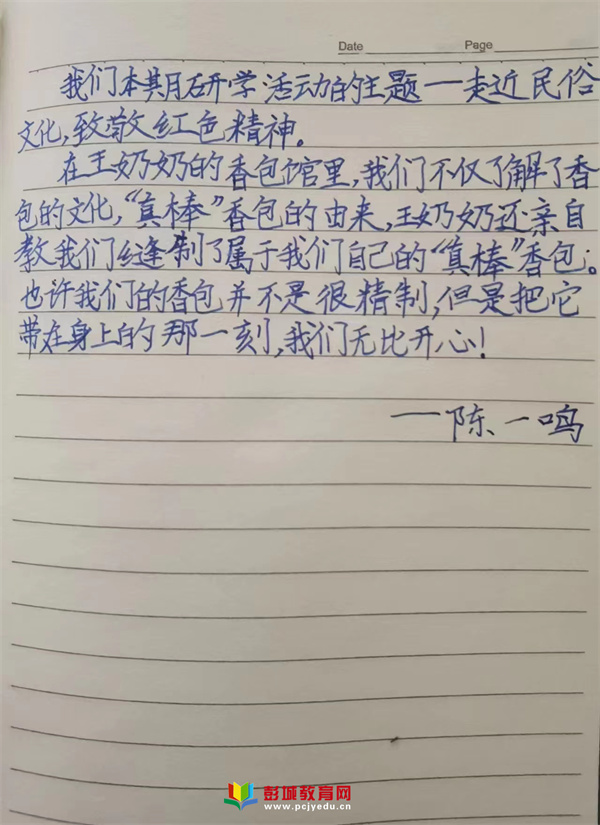 Date Page
我们本期研学活动的主题一走近民俗
文化,致敬红色精神。
在王奶奶的香包馆里,我们不仅了解了香
包的文化,“真棒”香包的由来,王奶奶还亲自
教我们缝制了属于我们自己的“真棒”香包。
也许我们的香包并不是很精制,但是把它
带在身上的那一刻,我们无比开心!
一陈一鸣
彭城教育网
www.pcjyedu.cn